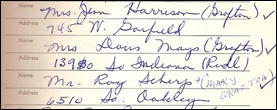 Name Mrs. Jem Harrison (Grafton) ✓
Address 745 W. Garfield
Name Mrs Doris Mays (Grafton) ✓
Address 13980 So Indiana (Rivdl)
Name Mr. Roy Scherps + (MARY GRAFTON) ✓
Address 6510 So. Oakley